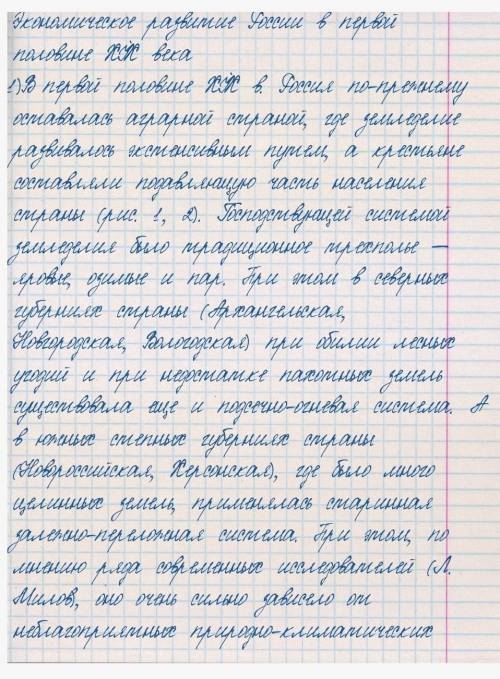 Экономическое развитие России в первой
половине XIX века
1) В первой половине XIX в. Россия по-прежнему
оставалась аграрной страной, где земледелие
развивалось экстенсивным путем, а крестьяне
составляли подавляющую часть населения
страны (рис. 1, 2). Господствующей системой
земледелия было традиционное трехполье —
яровые, озимые и пар. При этом в северных
губерниях страны (Архангельская,
Новгородская, Вологодская) при обилии лесных
угодий и при недостатке пахотных земель
существовала еще и подсечно-огневая система. А
в южных степных губерниях страны
(Новороссийская, Херсонская), где было много
целинных земель, применялась старинная
залежно-переложная система. При этом, по
мнению ряда современных исследователей (Л.
Милов), оно очень сильно зависело от
неблагоприятных природно-климатических